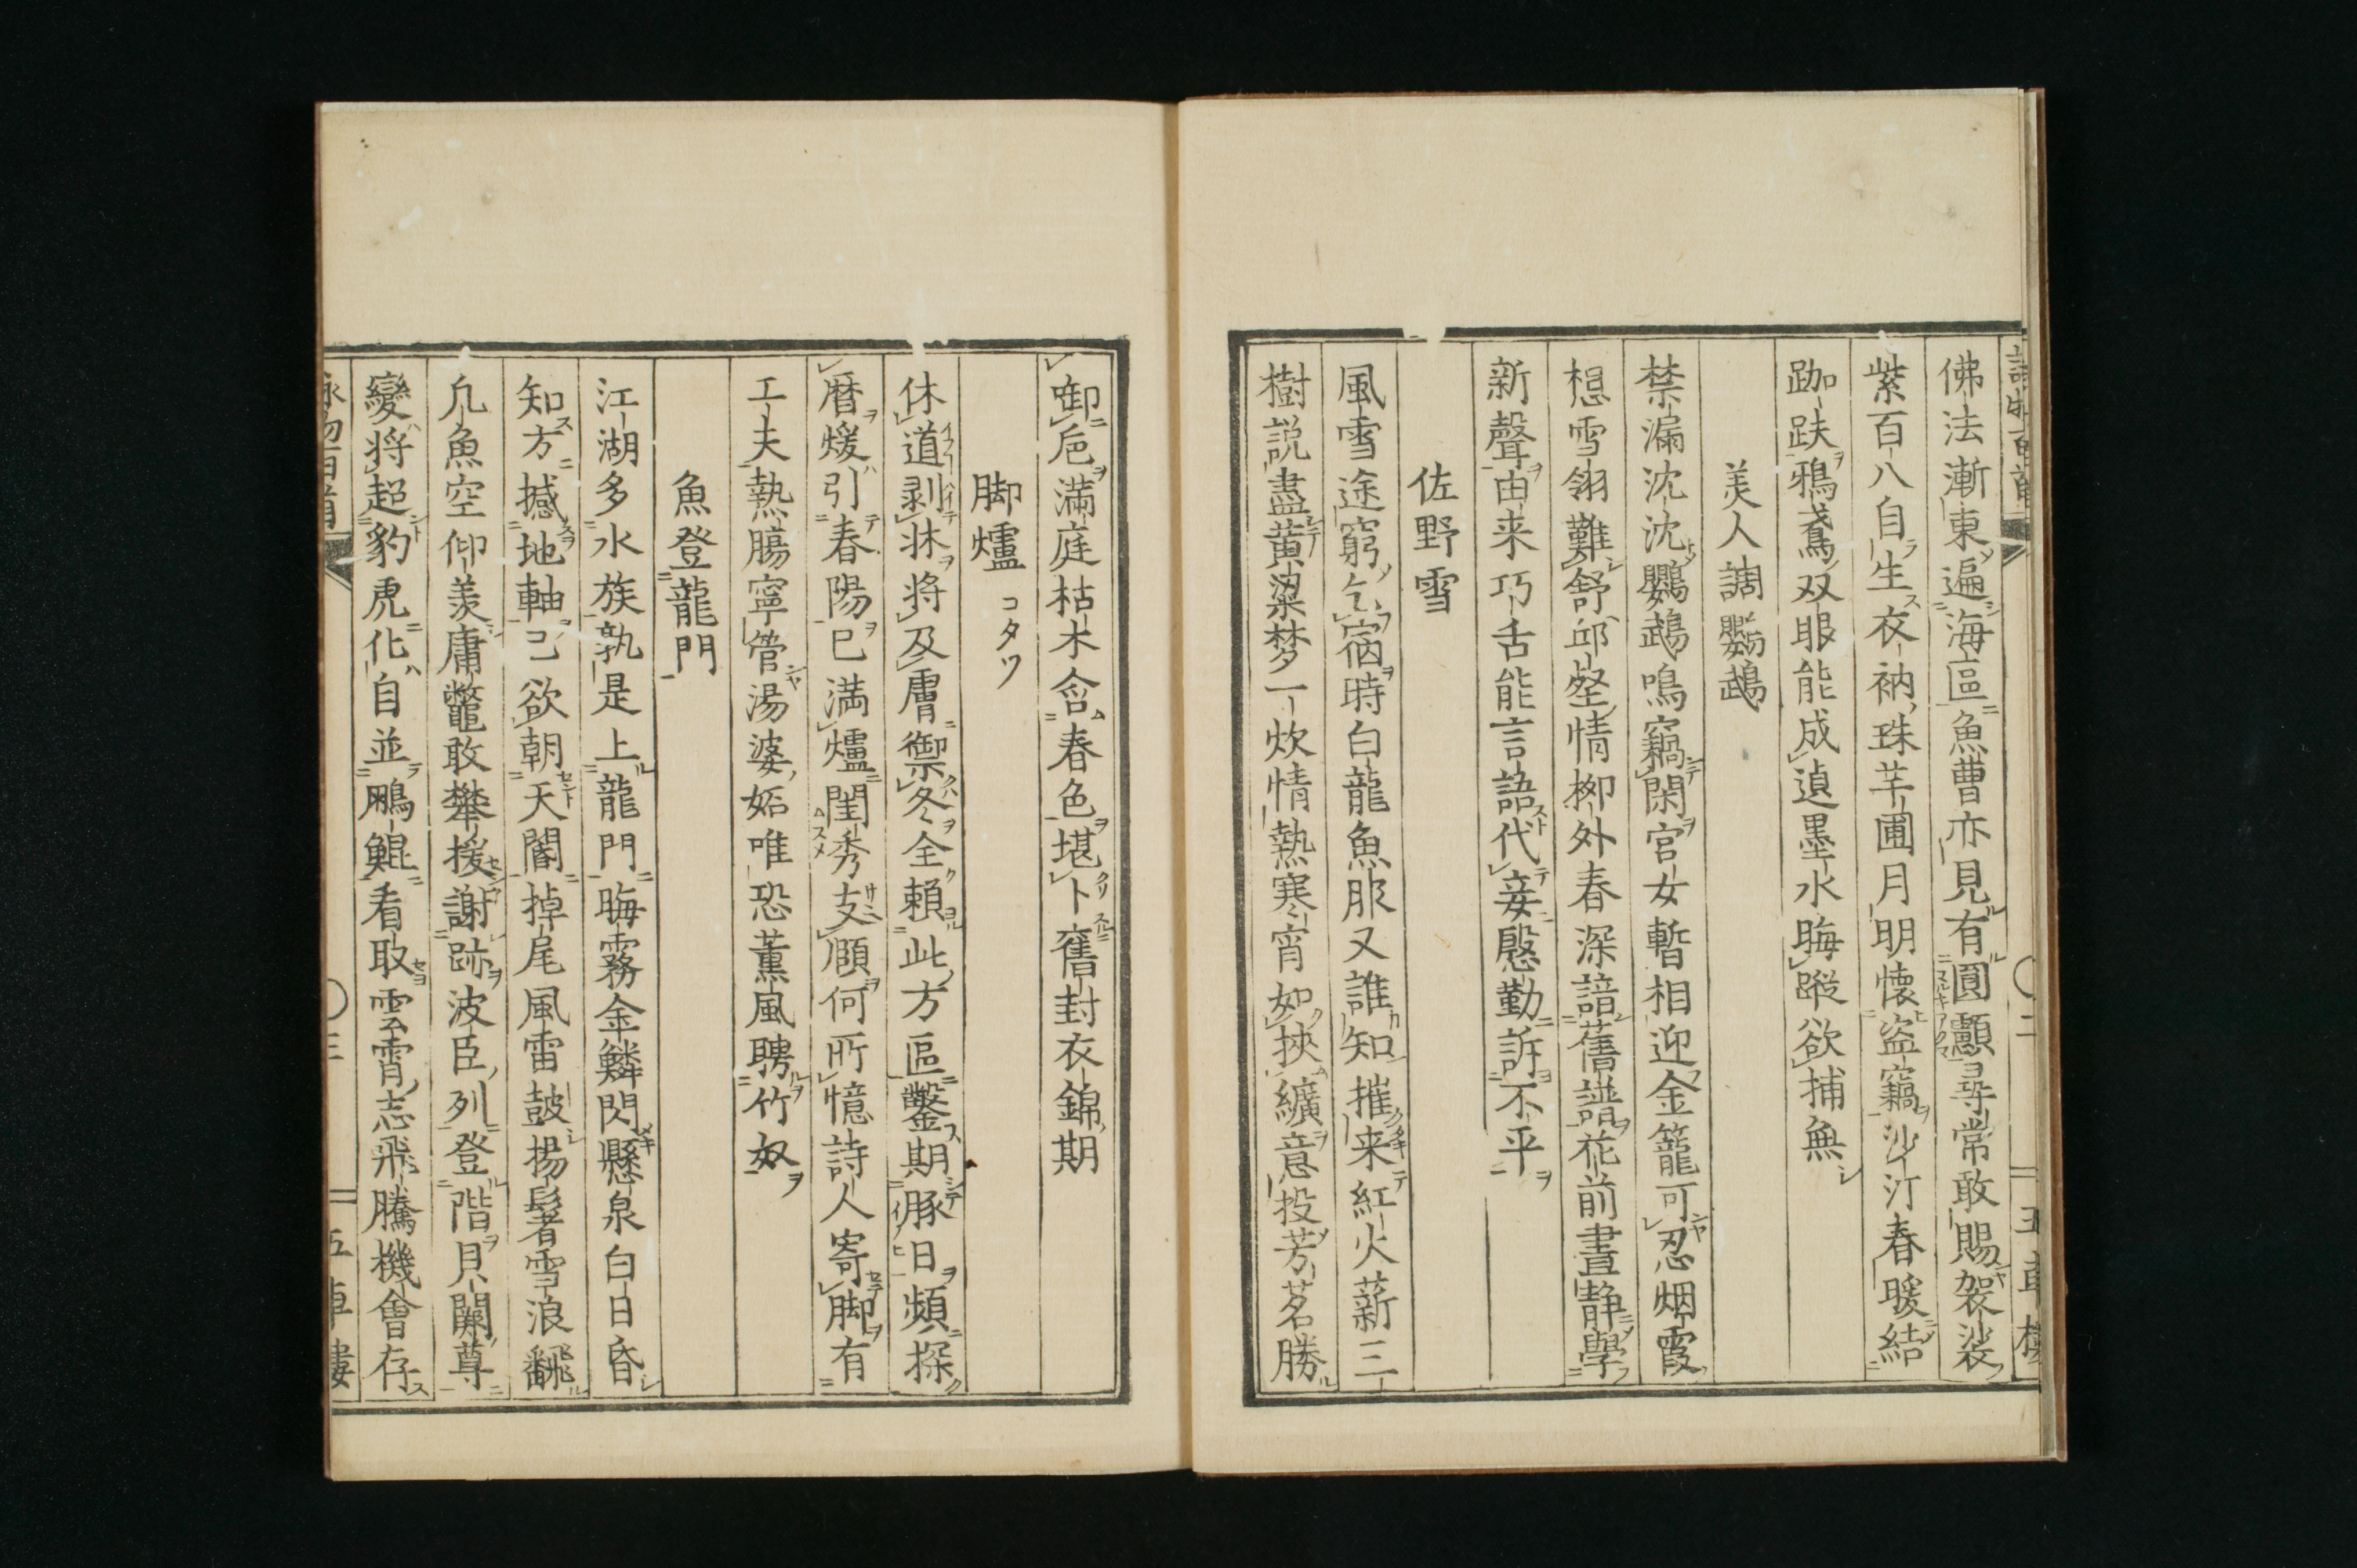 佛法漸東遍海區魚曹亦見有圓顱尋常敢賜袈裟
紫百八自生衣衲珠芋圃月明懐盗竊沙汀春暖結
跏趺鴉鳶双眼能成逭墨水晦蹤欲捕無
美人調鸚鵡
禁漏沈沈鸚鵡鳴竊閑宮女暫相迎金籠可忍烟霞
想雪翎難舒邱壑情栁外春深諳舊譜花前晝静學
新聲由来巧舌能言語代妾慇勤訴不平
佐野雪
風雪途窮乞宿時白龍魚服又誰知摧来紅火薪三
樹説盡黄粱梦一炊情熱寒宵如挾纊意投芳茗勝
啣巵滿庭枯木含春色堪卜舊封衣錦期
脚爐 コタツ
休道剥牀将及膚禦冬全頼此方區鑿期豚日頻探
暦煖引春陽已満爐閨秀支頤何所憶詩人寄脚有
工夫熱腸寧管湯婆妬唯恐薫風聘竹奴
魚登龍門
江湖多水族孰是上龍門晦霧金鱗閃懸泉白日昏
知方撼地軸已欲朝天閽掉尾風雷鼓揚髾雪浪飜
凢魚空仰羨庸鼈敢攀援謝跡波臣列登階貝闕尊
變将超豹虎化自並鵬鯤看取雲霄志飛騰機會存
詠物百首
二
五車樓
三